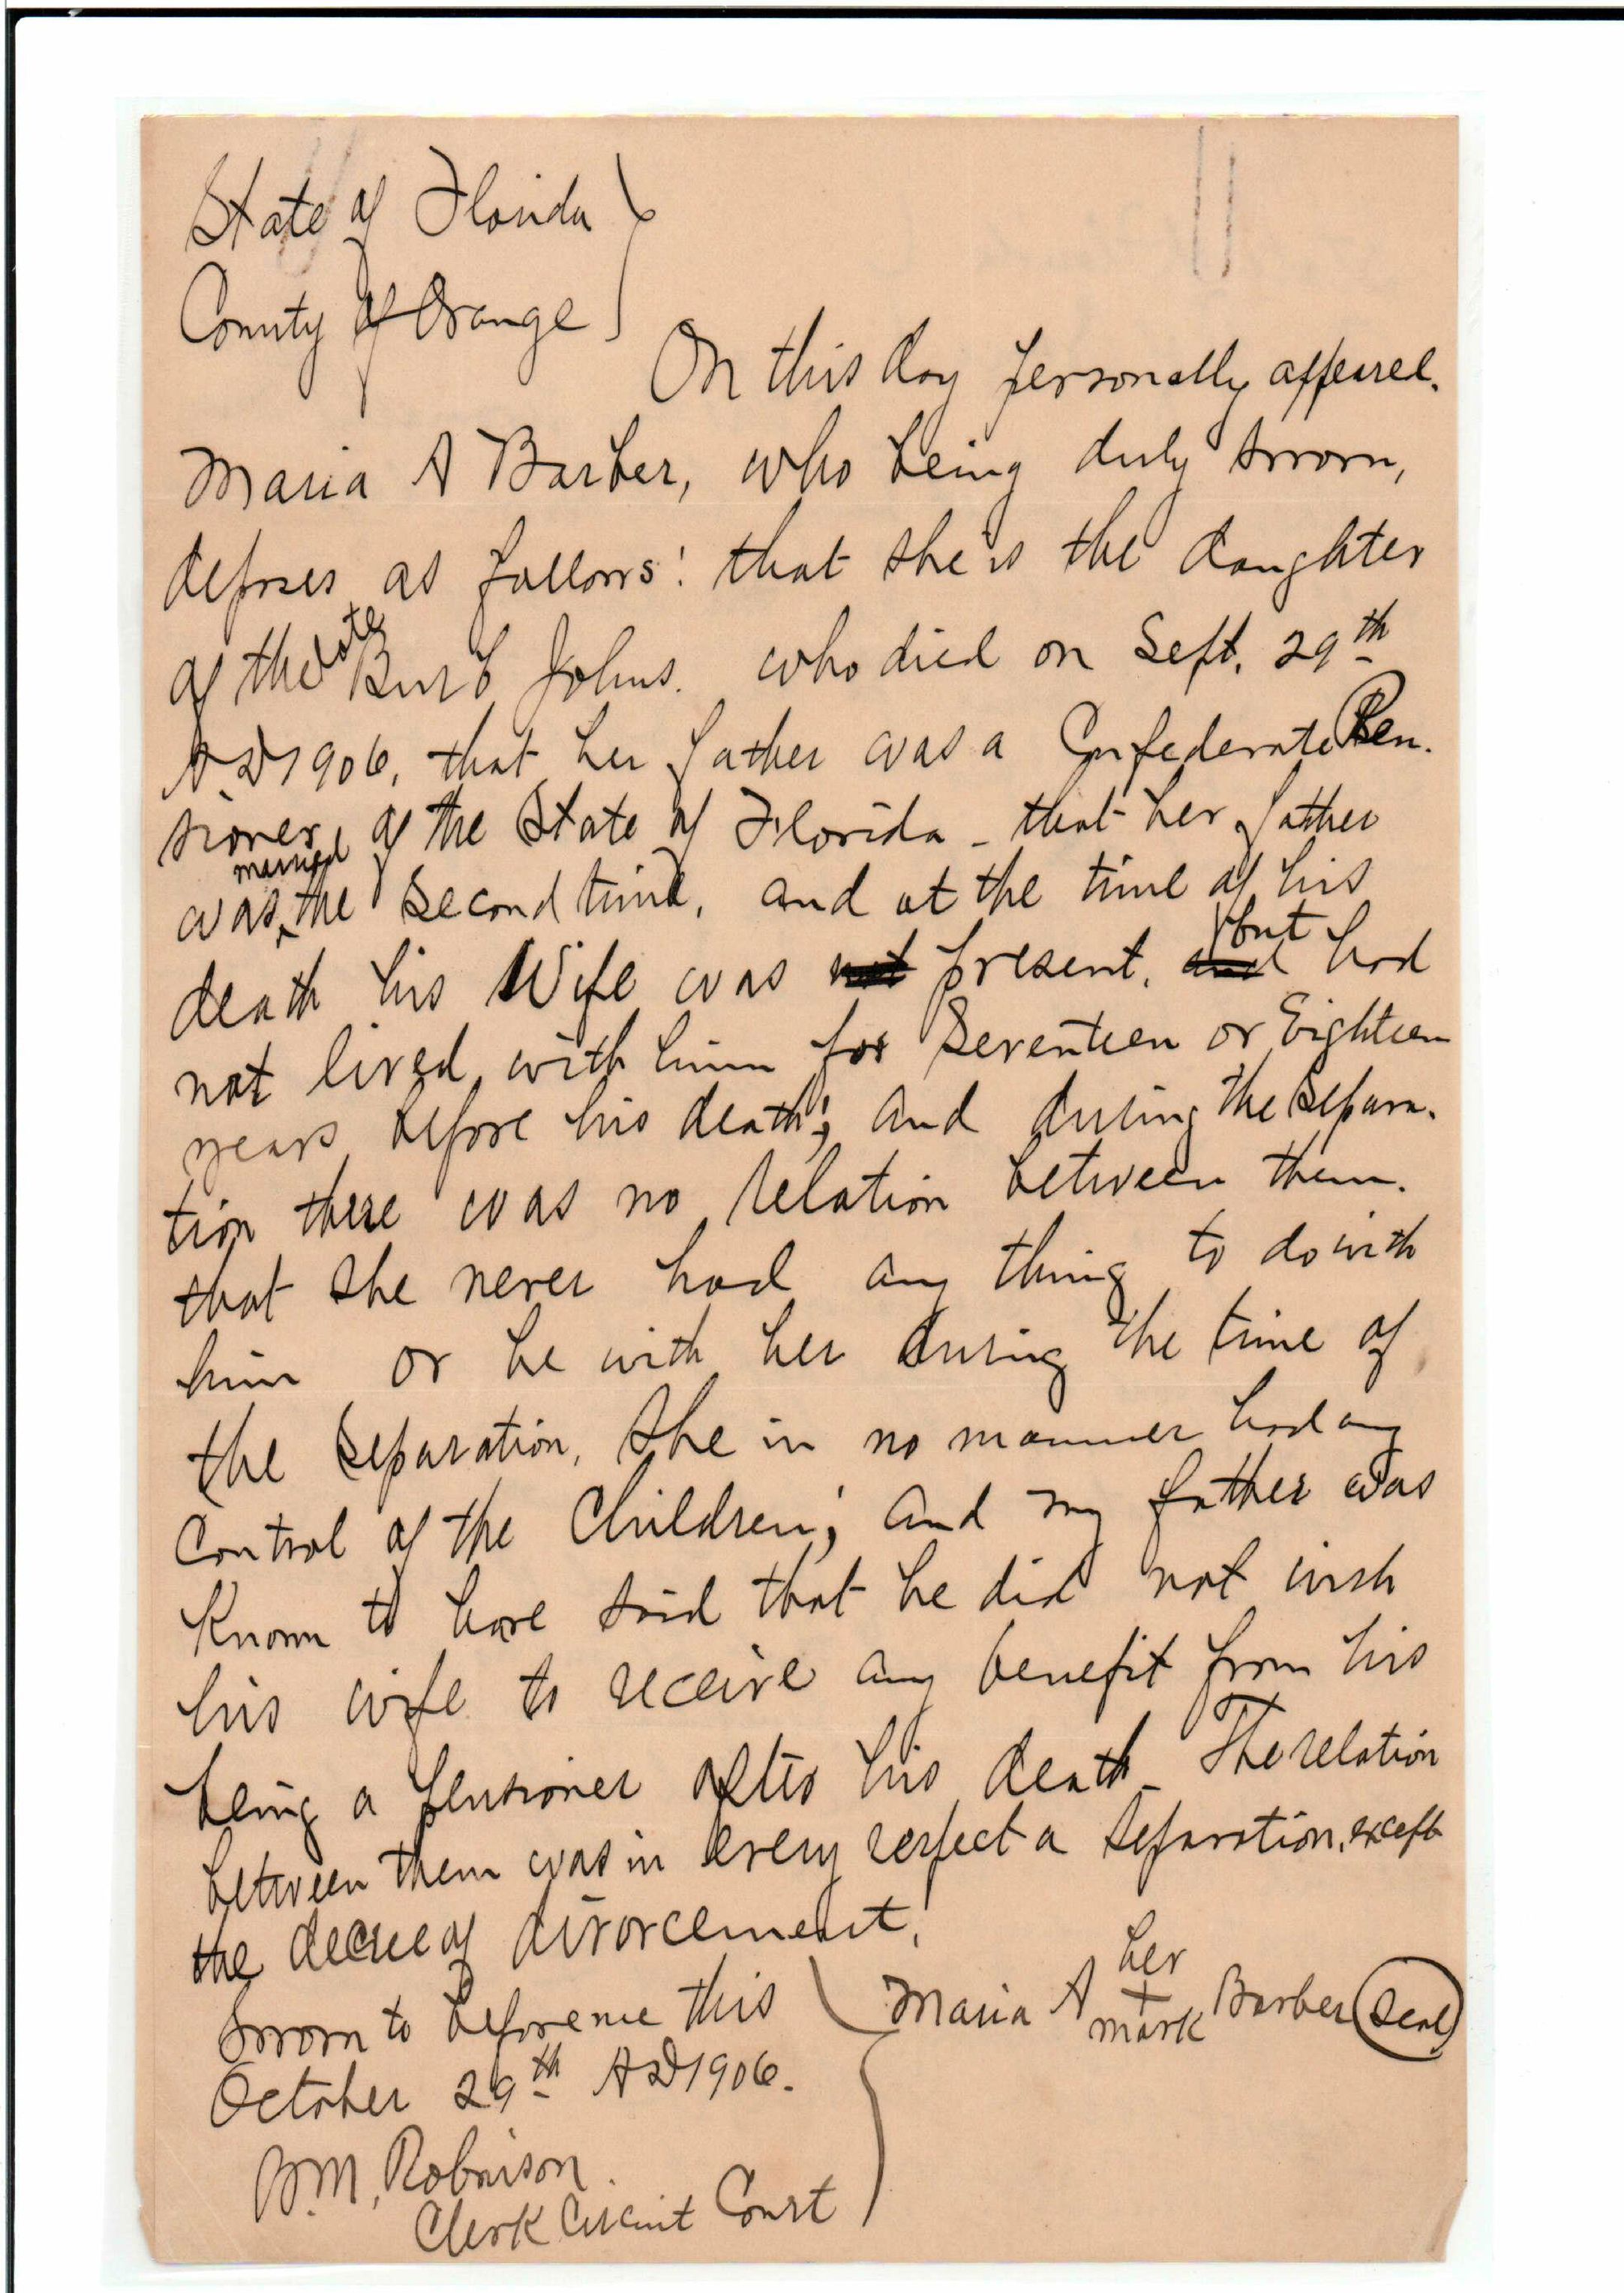 State of Florida
County of Orange
On this day personally appeared.
Maria A Barber, who being duly sworn,
deposes as follows: that she is the daughter
of the late Johns. who died on Sept. 29th
A D 1906, that her father was a Confederate Pen-
sioner, of the State of Florida - that her father
was married the second time, and at the time of his
death his Wife was not present, and but had
not lived with him for Seventeen or Eighteen
years before his death; and during the Separa-
tion there was no relation between them.
that she never had any thing to do with
him or he with her during the time of
the Separation, She in no manner had any
Control of the Children; and my father was
Known to have said that he did not wish
his wife to receive any benefit from his
being a pensioner after his death - The relation
between them was in every respect a Separation, except
the decree of divorcement,
Sworn to before me this
October 29th A D 1906.
B.M. Robinson.
Clerk Circuit Court
Maria A her + mark Barber (Seal)